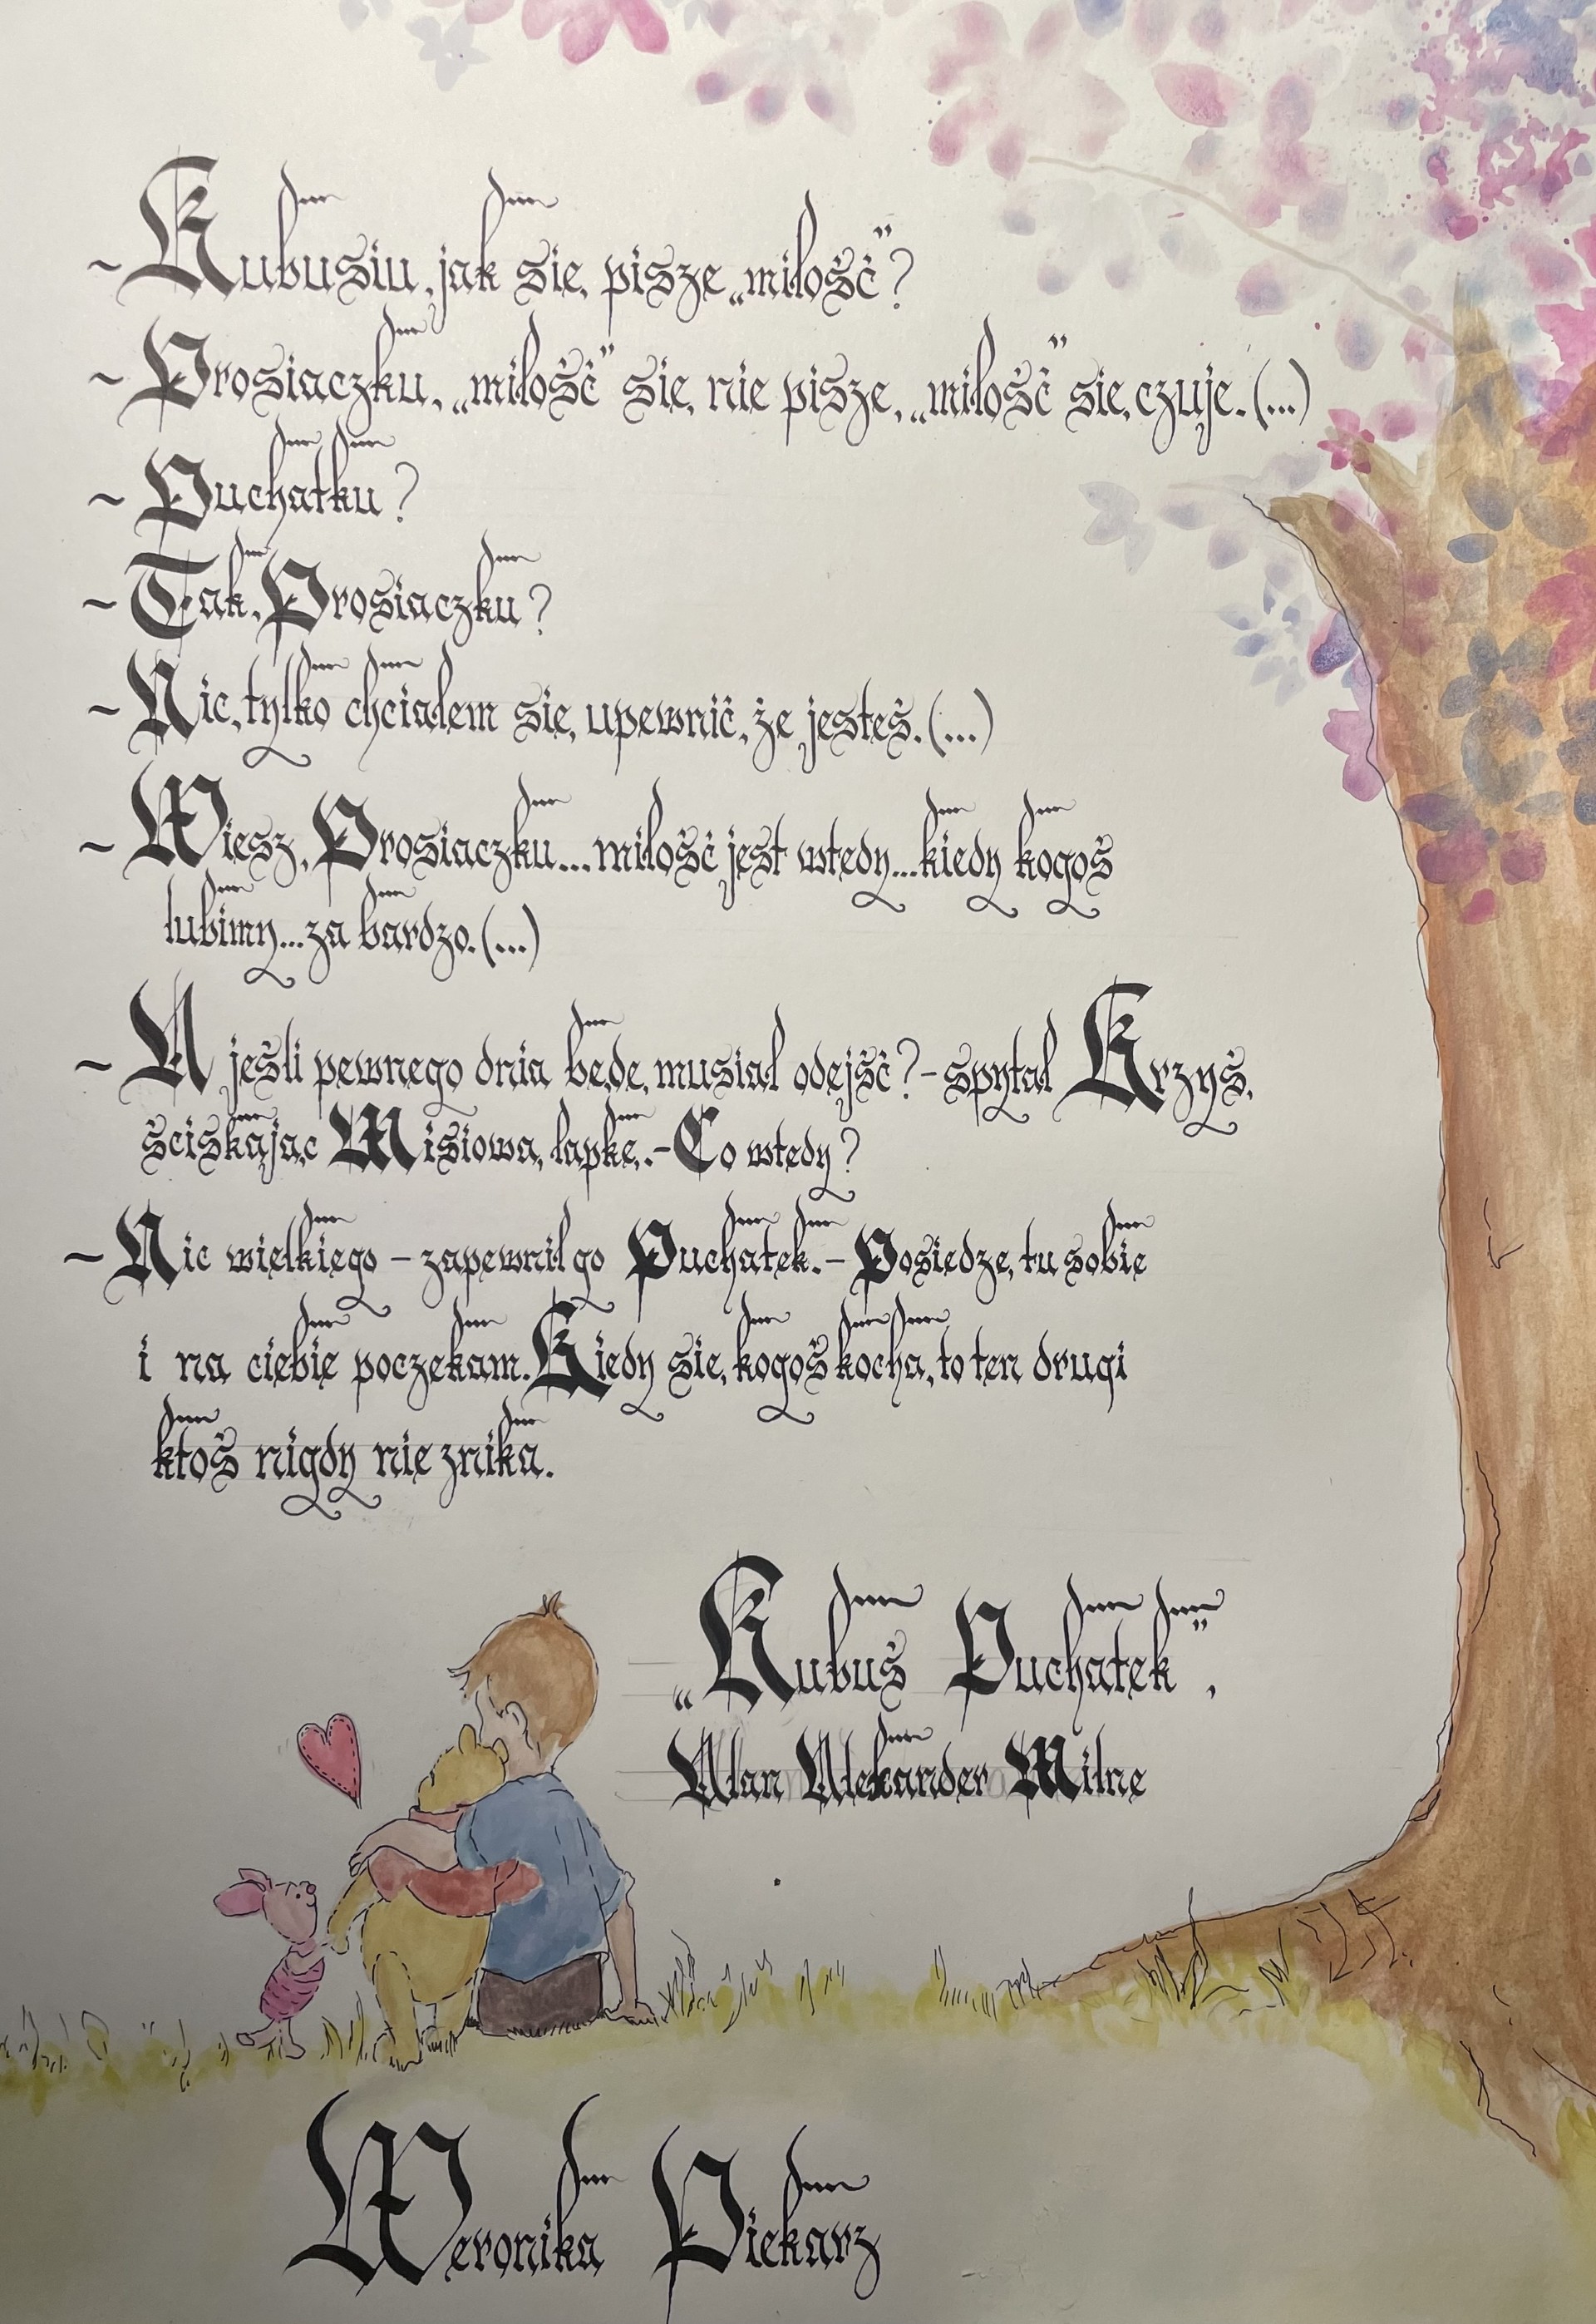 - Kubusiu, jak się pisze „miłość”?
- Prosiaczku, „miłość” się nie pisze, „miłość” się czuje. (...)
- Puchatku?
- Tak, Prosiaczku?
- Nic, tylko chciałem się upewnić, że jesteś. (...)
- Wiesz, Prosiaczku... miłość jest wtedy... kiedy kogoś
lubimy... za bardzo. (...)
- A jeśli pewnego dnia będę musiał odejść? - spytał Krzyś,
ściskając Misiową łapkę. - Co wtedy?
- Nic wielkiego - zapewnił go Puchatek. - Posiedzę tu sobie
i na ciebie poczekam. Kiedy się kogoś kocha, to ten drugi
ktoś nigdy nie znika.
„Kubuś Puchatek”,
Alan Alekander Milne
Weronika Piekarz